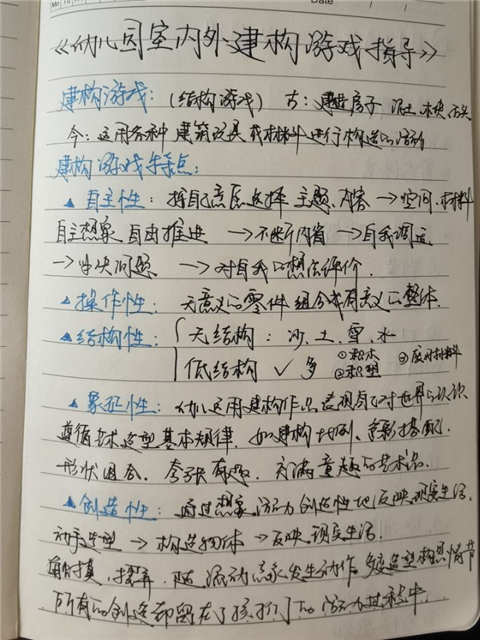 Date
《幼儿园室内外建构游戏指导》
建构游戏：（结构游戏） 古：建造房子 泥土 木块 石头
今：运用各种建筑玩具或材料进行构造的活动
建构游戏特点：
▲自主性：按自己意愿选择主题、内容→空间、材料
自主想象 自由推进 →不断内省→自我调
→解决问题 →对自我的想法评价.
▲操作性：无意义的零件组合成有意义的整体.
▲结构性：无结构：沙、土、雪、水
低结构 ✓ 多 ①积木 ②积塑 ③废旧材料
▲象征性：幼儿运用建构作品 表现自己对世界的认识
遵循艺术造型基本规律，如建构比例、色彩搭配、
形状组合、夸张有趣、充满童趣的艺术品.
▲创造性：通过想象、活动创造性地反映现实生活.
动手造型→构造物体→反映现实生活.
模拟、探索 随 活动 发生动作 造型构思情节
所有的创造都留在了孩子们的活动过程中.